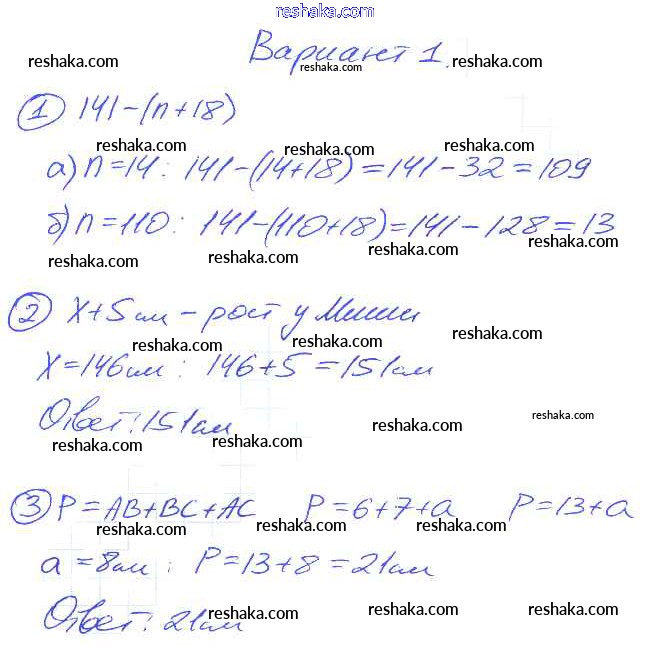 reshaka.com
Вариант 1.
reshaka.com reshaka.com reshaka.com
① 141-(n+18)
reshaka.com reshaka.com reshaka.com
а) n=14: 141-(14+18)=141-32=109
reshaka.com reshaka.com reshaka.com
б) n=110: 141-(110+18)=141-128=13
reshaka.com reshaka.com reshaka.com
② x+5см - рост у Миши
reshaka.com reshaka.com reshaka.com
x=146см: 146+5=151см
reshaka.com reshaka.com
Ответ: 151см
reshaka.com reshaka.com
③ P=AB+BC+AC P=6+7+a P=13+a
reshaka.com reshaka.com reshaka.com
a=8см: P=13+8=21см
Ответ: 21см
reshaka.com reshaka.com reshaka.com